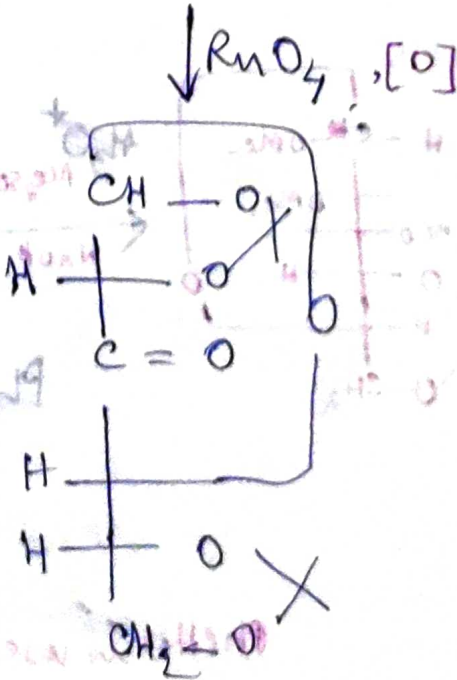 RuO4, [O]
CH — O
H O
O
C = O
H
H O
CH2 – O